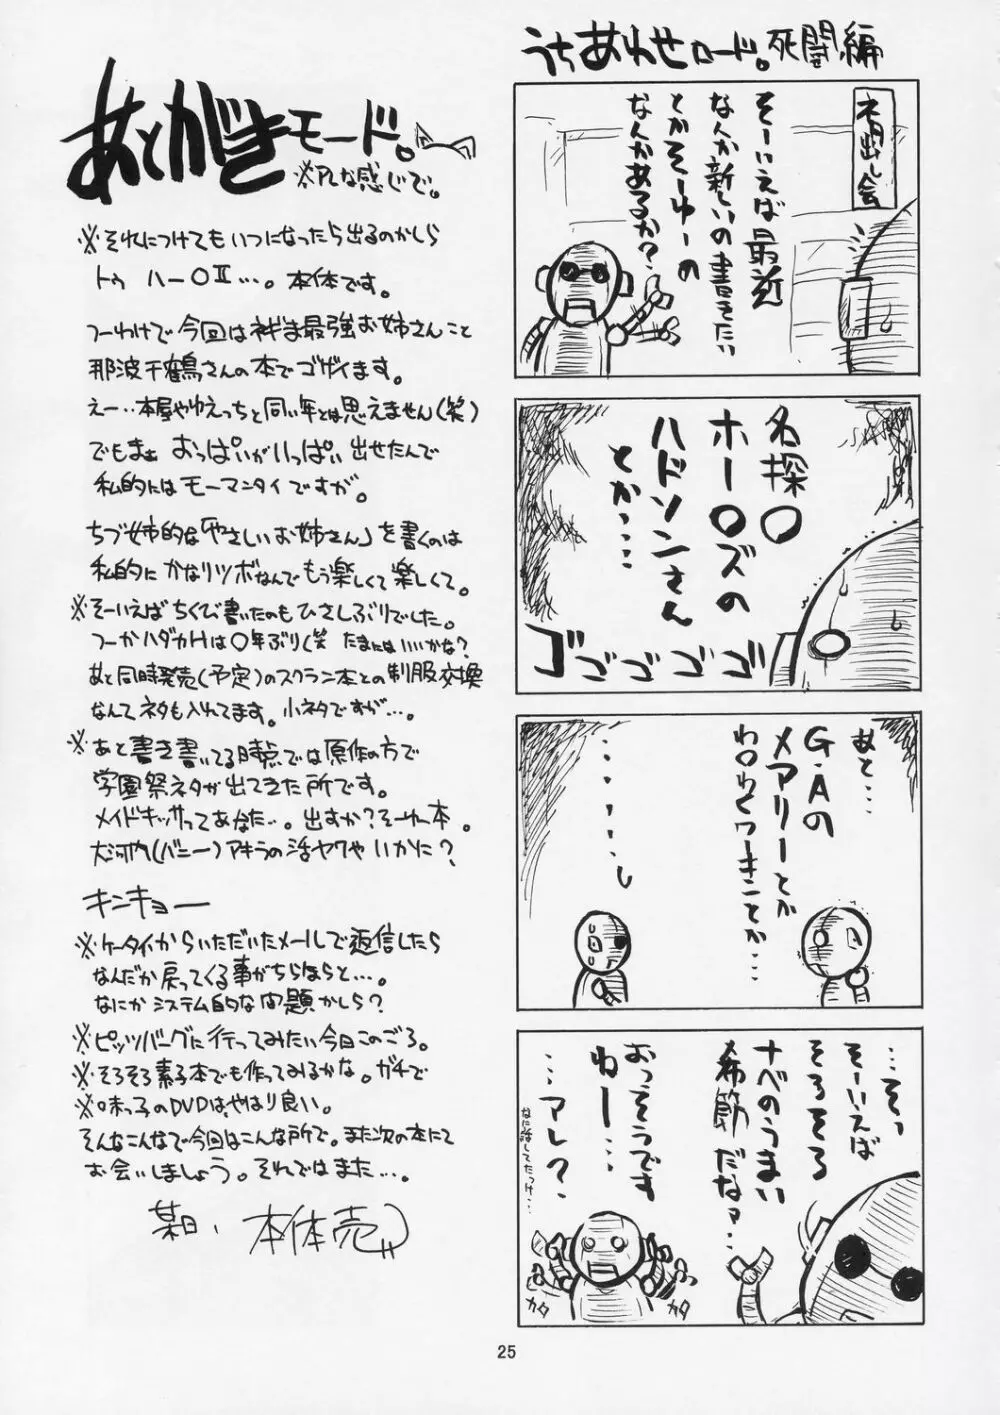 うちあわせロード。死闘編
ネタ出し会
そーいえば最近
なんか新しいの書きたい
とかそーゆーの
なんかあるか?
名探○
ホー○ズの
ハドソンさん
とか……
ゴゴゴゴゴ
あと…
G・Aの
メアリーとか
わ○わくワーキンとか…
……し
…そっ
そーいえば
そろそろ
ナベのうまい
季節だなァ…
おっそうです
ねー…
…アレ?
なに話してたっけ…
カタ
カタ
あとがきモード。
※アレな感じで。
※それにつけてもいつになったら出るのかしら
トゥ ハー○Ⅱ…。本体です。
つーわけで今回はネギま最強お姉さんこと
那波千鶴さんの本でゴザイます。
えー…本屋やゆえっちと同い年とは思えません(笑)
でもまぁ おっぱいがいっぱい 出せたんで
私的にはモーマンタイですが。
ちづ姉的な「やさしいお姉さん」を書くのは
私的にかなりツボなんでもう楽しくて楽しくて。
※そーいえばちくび書いたのもひさしぶりでした。
つーかハダカHは○年ぶり(笑 たまにはいいかな?
あと同時発売(予定)のスクラン本との制服交換
なんてネタも入れてます。小ネタですが…。
※あと書き書いてる時点では原作の方で
学園祭ネタが出てきた所です。
メイドキッサってあなた…。出すか?そーゆー本。
大河内(バニー)アキラの活ヤクやいかに?
キンキョー
※ケータイからいただいたメールで返信したら
なんだか戻ってくる事がちらほらと…。
なにかシステム的な問題かしら?
※ピッツバーグに行ってみたい今日このごろ。
※そろそろ素子本でも作ってみるかな。ガチで
※味っ子のDVDは、やはり良い。
そんなこんなで今回はこんな所で。また次の本にて
お会いしましょう。それではまた…。
某日、本体売
25